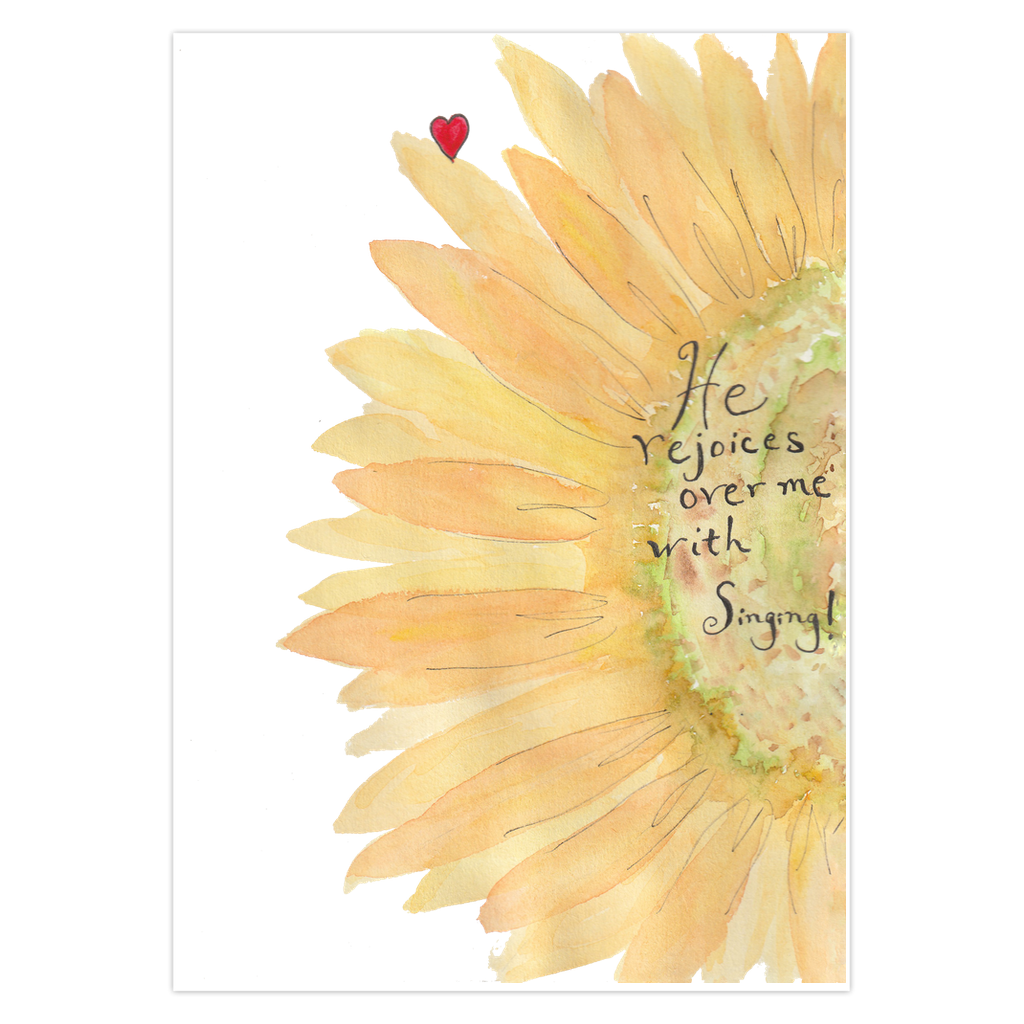 He
rejoices
over me
with
Singing!